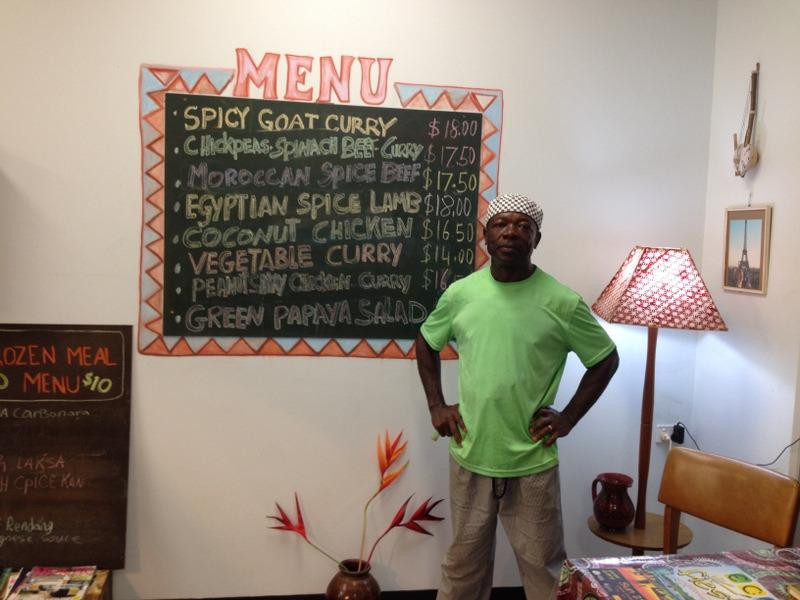 MENU
SPICY GOAT CURRY $18.00
CHICKPEAS-SPINACH BEEF CURRY $17.50
MOROCCAN SPICE BEEF $17.50
EGYPTIAN SPICE LAMB $18.00
COCONUT CHICKEN $16.50
VEGETABLE CURRY $14.00
CHICKEN CURRY $16
GREEN PAPAYA SALAD
ROZEN MEAL
MENU $10
A Carbonara
LAKSA
Rendang